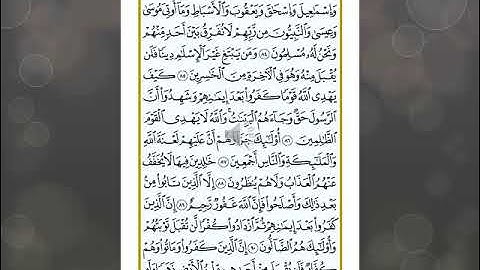 وَإِسْمَاعِيلَ وَإِسْحَاقَ وَيَعْقُوبَ وَالْأَسْبَاطِ وَمَا أُوتِيَ مُوسَىٰ
وَعِيسَىٰ وَالنَّبِيُّونَ مِن رَّبِّهِمْ لَا نُفَرِّقُ بَيْنَ أَحَدٍ مِّنْهُمْ
وَنَحْنُ لَهُ مُسْلِمُونَ ٨٤ وَمَن يَبْتَغِ غَيْرَ الْإِسْلَامِ دِينًا فَلَن
يُقْبَلَ مِنْهُ وَهُوَ فِي الْآخِرَةِ مِنَ الْخَاسِرِينَ ٨٥ كَيْفَ
يَهْدِي اللَّهُ قَوْمًا كَفَرُوا بَعْدَ إِيمَانِهِمْ وَشَهِدُوا أَنَّ
الرَّسُولَ حَقٌّ وَجَاءَهُمُ الْبَيِّنَاتُ وَاللَّهُ لَا يَهْدِي الْقَوْمَ
الظَّالِمِينَ ٨٦ أُولَٰئِكَ جَزَاؤُهُمْ أَنَّ عَلَيْهِمْ لَعْنَةَ اللَّهِ
وَالْمَلَائِكَةِ وَالنَّاسِ أَجْمَعِينَ ٨٧ خَالِدِينَ فِيهَا لَا يُخَفَّفُ
عَنْهُمُ الْعَذَابُ وَلَا هُمْ يُنظَرُونَ ٨٨ إِلَّا الَّذِينَ تَابُوا مِن
بَعْدِ ذَٰلِكَ وَأَصْلَحُوا فَإِنَّ اللَّهَ غَفُورٌ رَّحِيمٌ ٨٩ إِنَّ الَّذِينَ
كَفَرُوا بَعْدَ إِيمَانِهِمْ ثُمَّ ازْدَادُوا كُفْرًا لَّن تُقْبَلَ تَوْبَتُهُمْ
وَأُولَٰئِكَ هُمُ الضَّالُّونَ ٩٠ إِنَّ الَّذِينَ كَفَرُوا وَمَاتُوا وَهُمْ